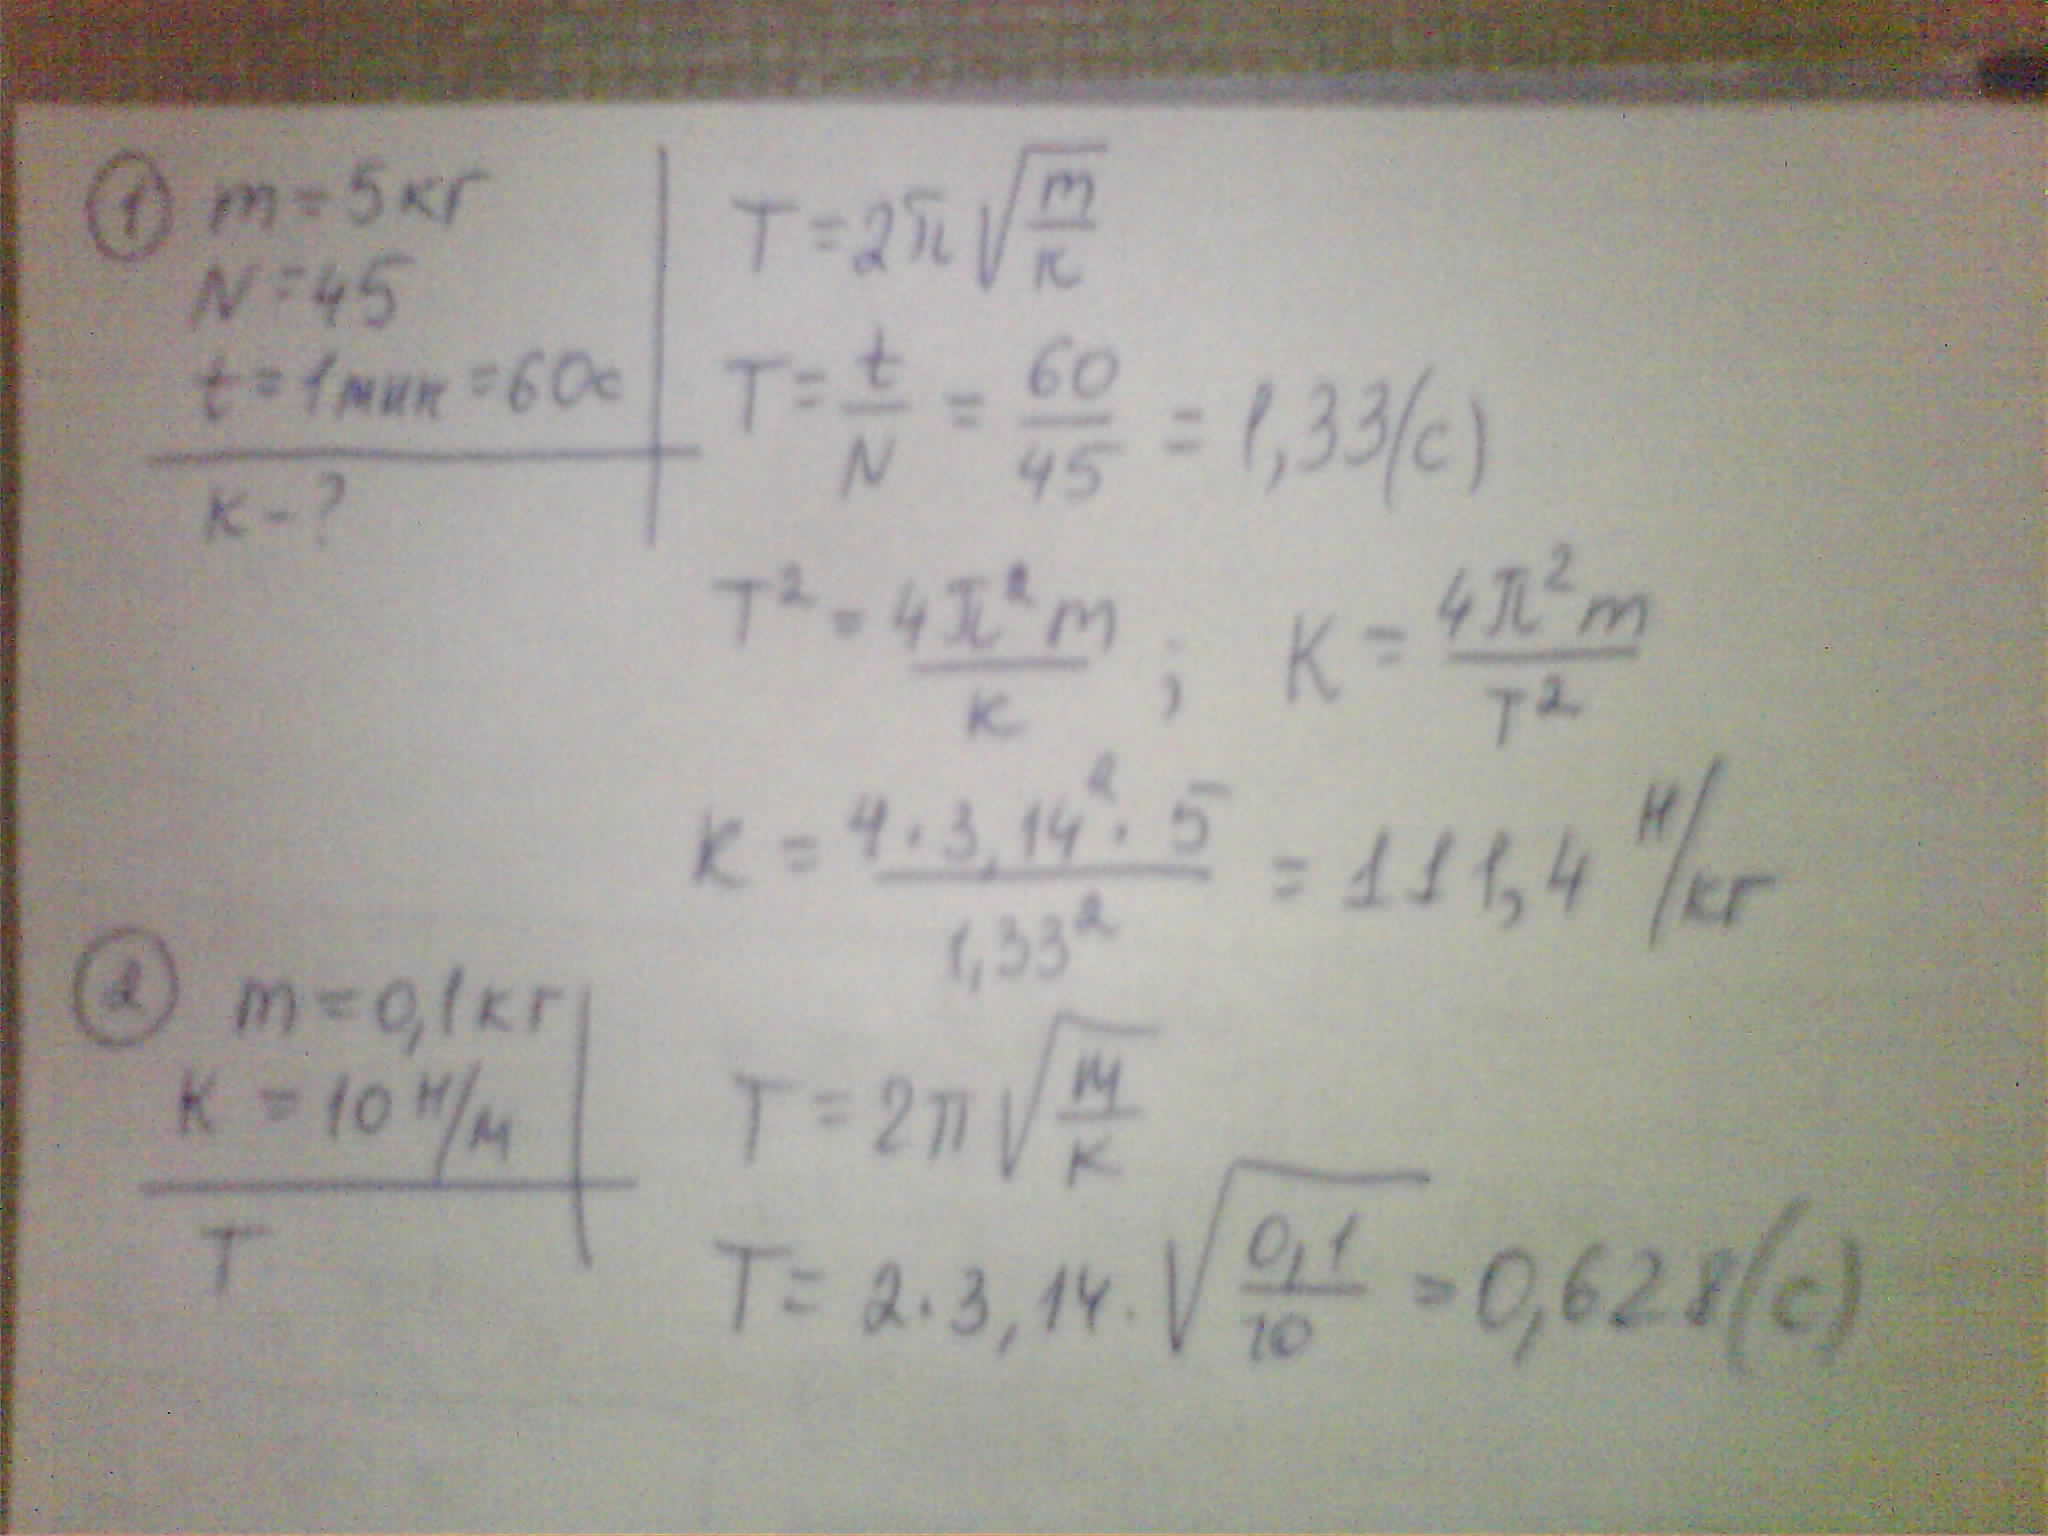 ① m = 5 кг
N = 45
t = 1 мин = 60с
к - ?
T = 2π√(m/к)
T = t/N = 60/45 = 1,33 (с)
T² = 4π²m/к ; К = 4π²m/T²
К = 4·3,14²·5/1,33² = 111,4 Н/кг
② m = 0,1 кг
К = 10 Н/м
T
T = 2π√(m/к)
T = 2·3,14·√(0,1/10) = 0,628 (с)